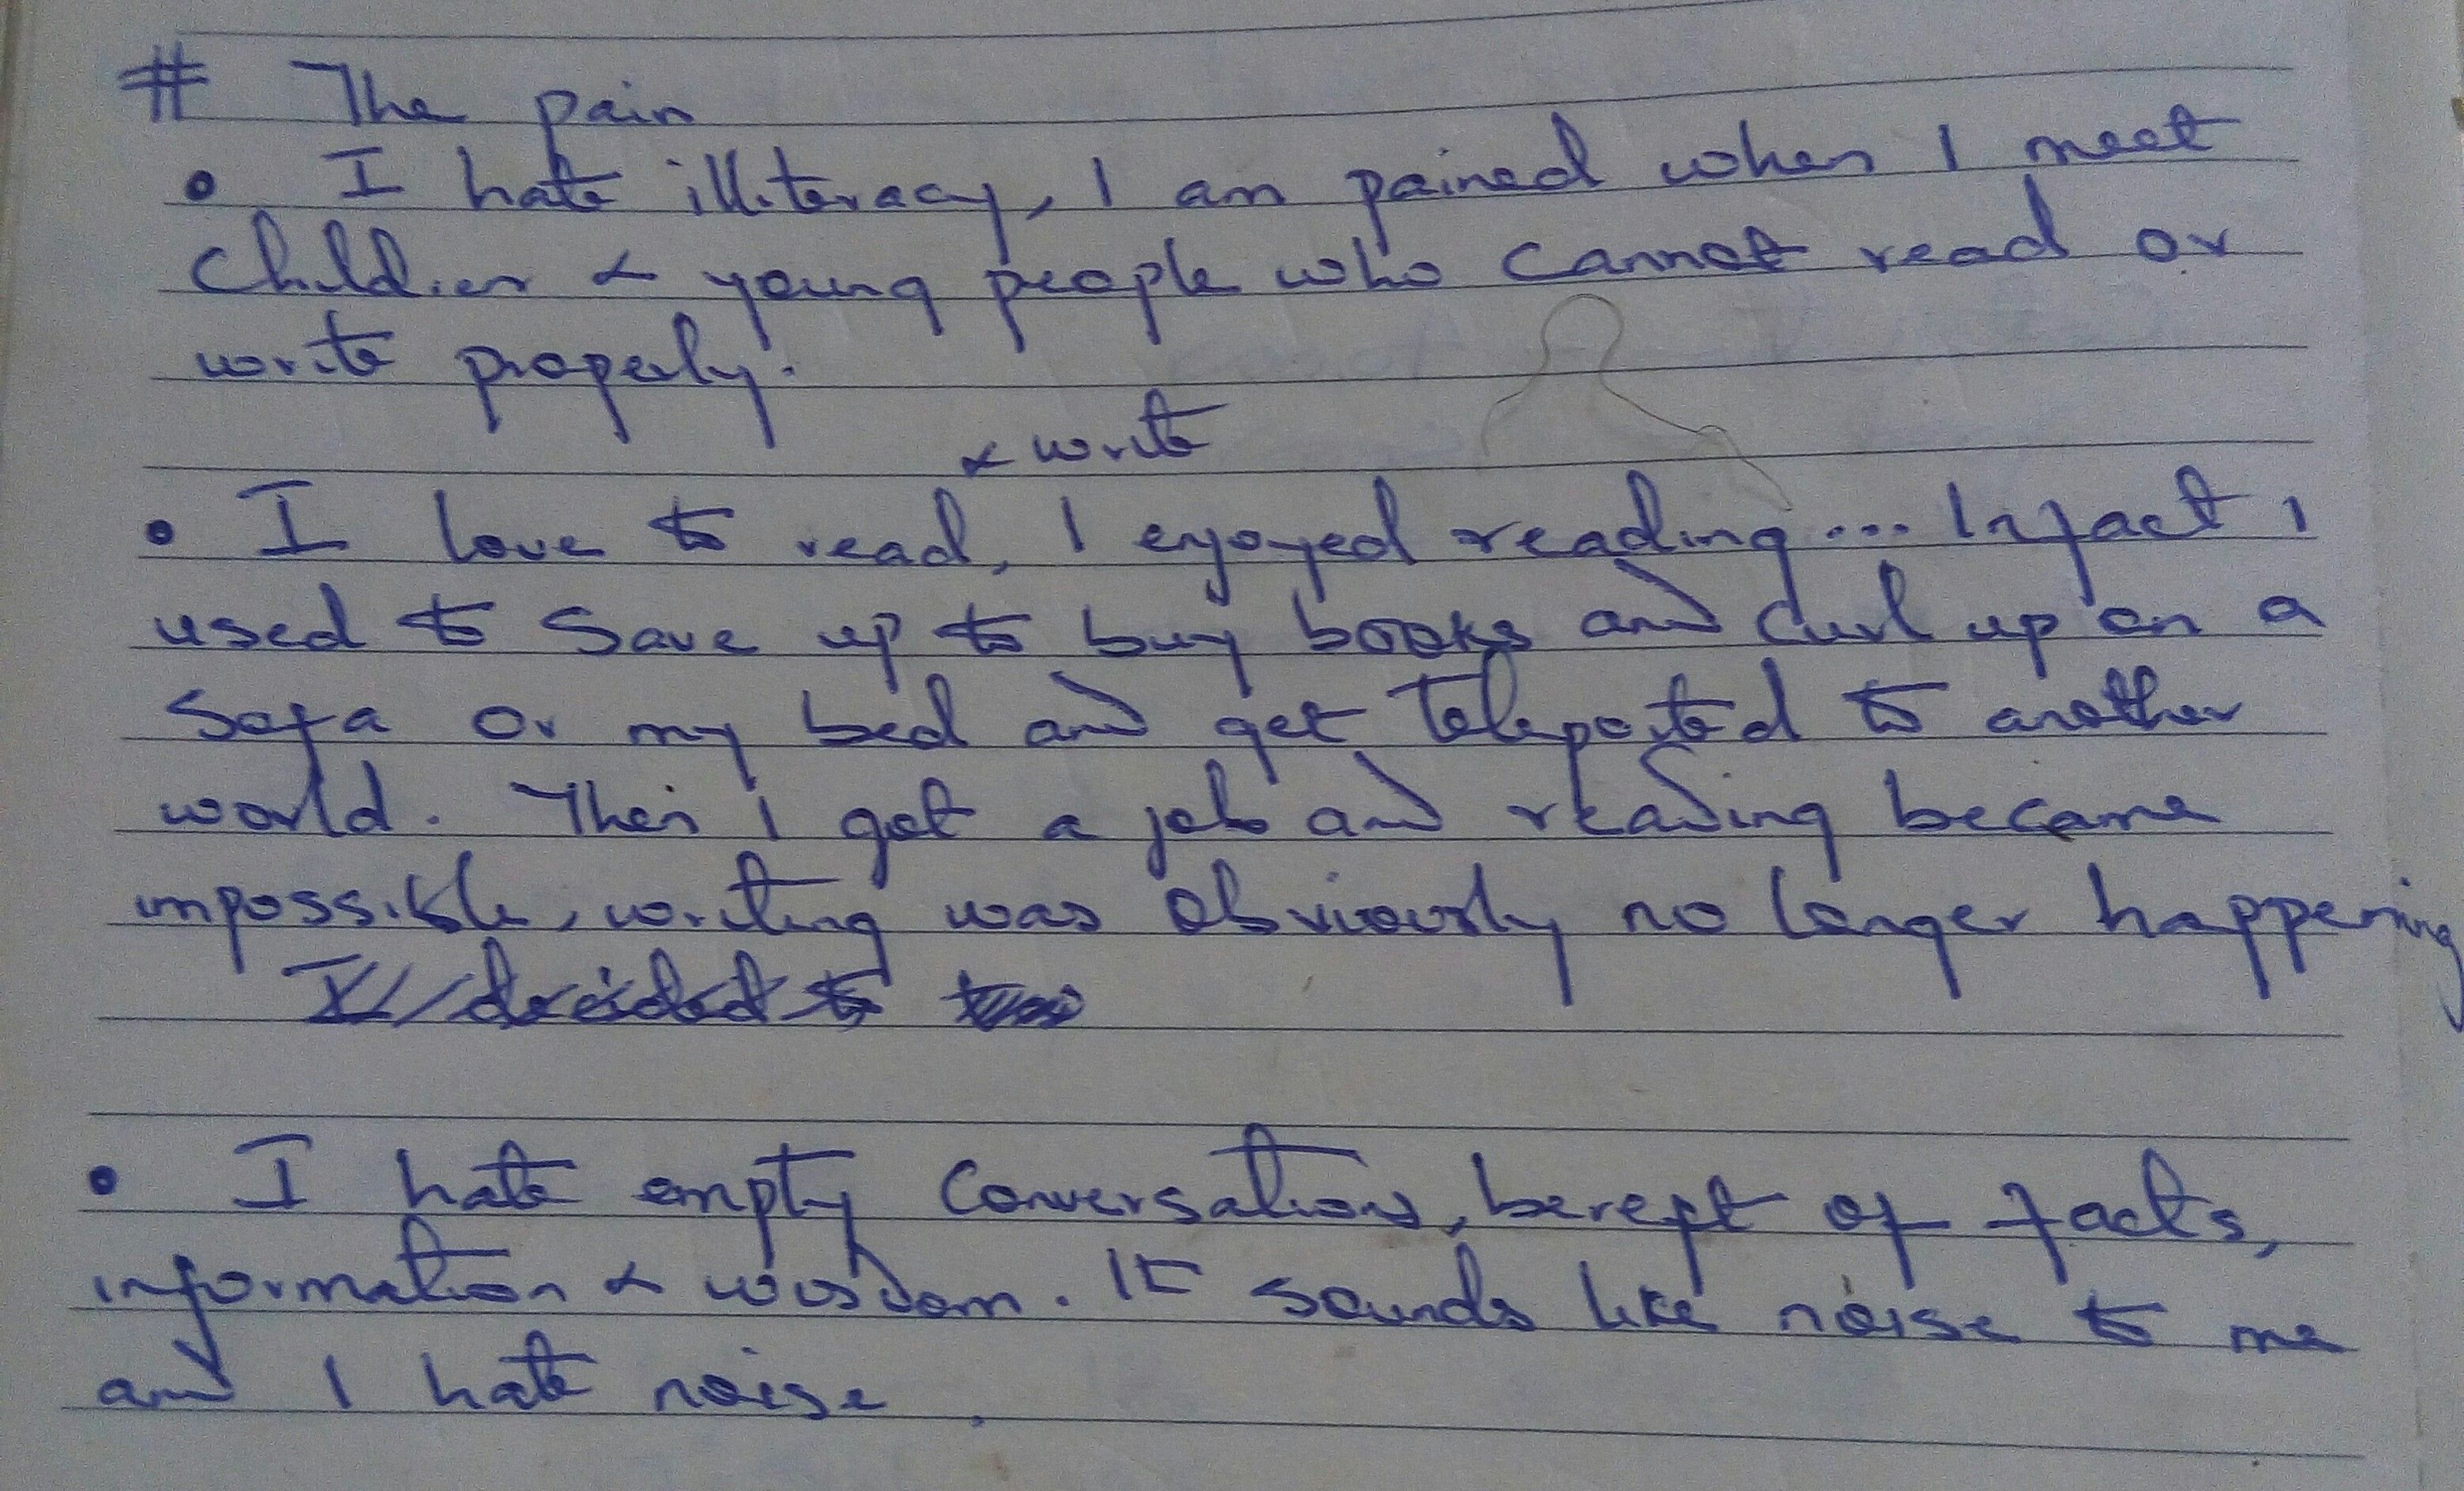 # The pain
• I hate illiteracy, I am pained when I meet
children & young people who cannot read or
write properly.
& write
• I love to read, I enjoyed reading... Infact I
used to save up to buy books and curl up on a
sofa or my bed and get teleported to another
world. Then I got a job and reading became
impossible, writing was obviously no longer happening
I decided to
• I hate empty conversations, bereft of facts,
information & wisdom. It sounds like noise to me
and I hate noise.